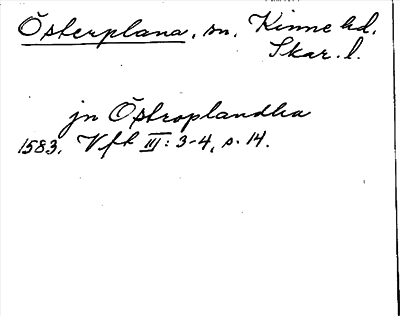 Österplana, sn, Kinne hd.
Skar. l.
jn Östroplandha
1583. Vfk III: 3-4, s. 14.